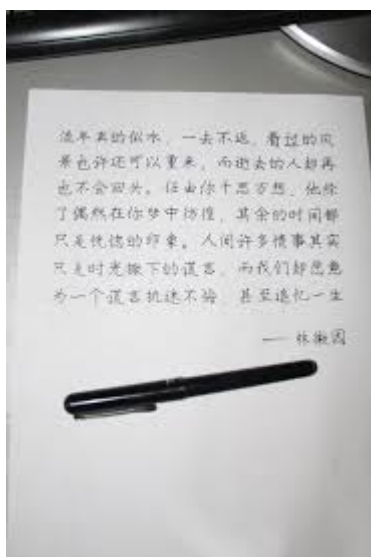 流年真的似水，一去不返，看过的风
景也许还可以重来，而逝去的人却再
也不会回头。任由你千思万想，他除
了偶然在你梦中彷徨，其余的时间都
只是恍惚的印象。人间许多情事其实
只是时光撒下的谎言，而我们却愿意
为一个谎言执迷不悔，甚至追忆一生
—— 林徽因